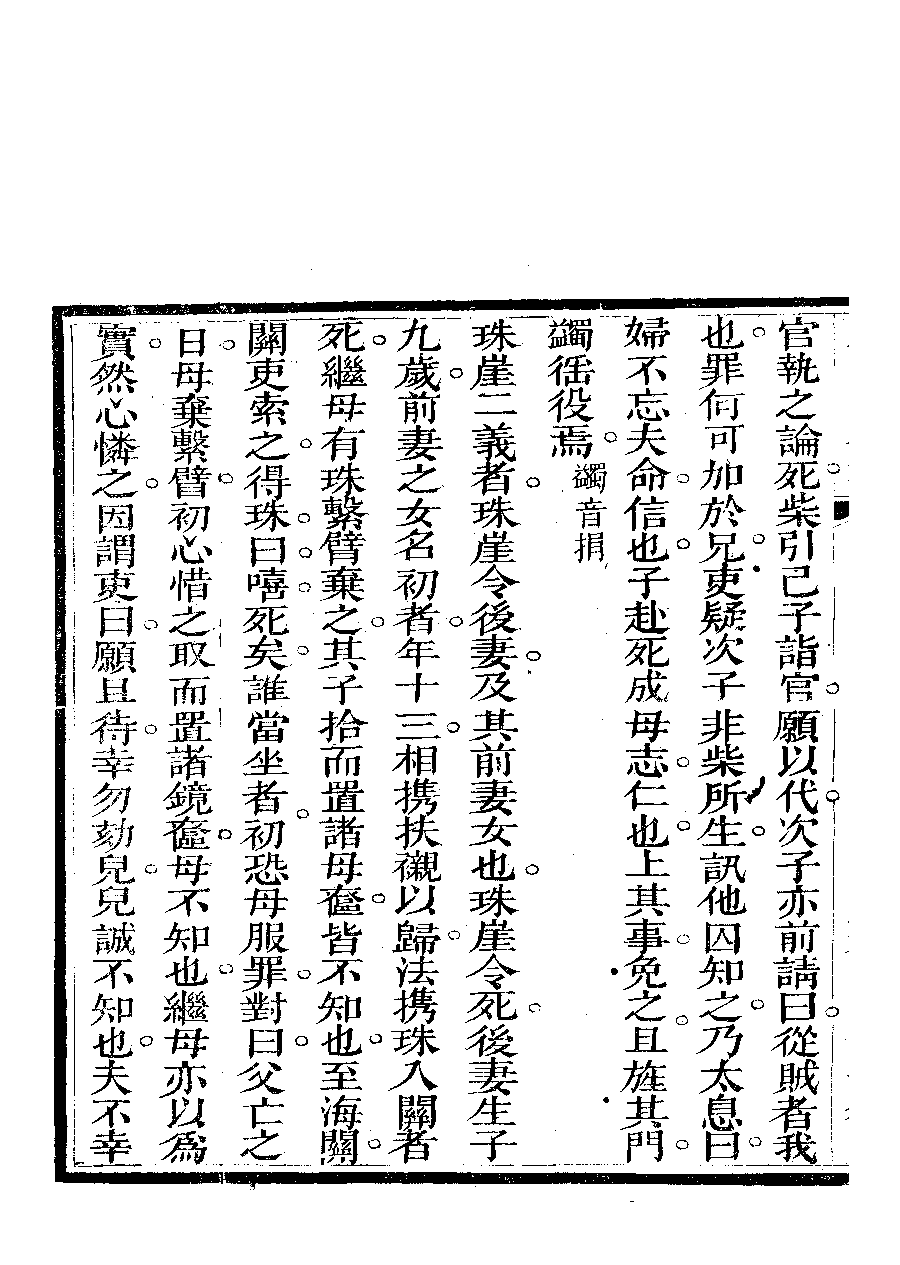 官執之論死柴引己子詣官願以代次子亦前請曰從賊者我
也罪何可加於兄吏疑次子非柴所生訊他囚知之乃太息曰
婦不忘夫命信也子赴死成母志仁也上其事免之且旌其門
蠲徭役焉蠲音捐
珠崖二義者珠崖令後妻及其前妻女也珠崖令死後妻生子
九歲前妻之女名初者年十三相携扶櫬以歸法携珠入關者
死繼母有珠繫臂棄之其子拾而置諸母奩皆不知也至海關
關吏索之得珠曰嘻死矣誰當坐者初恐母服罪對曰父亡之
日母棄繫臂初心惜之取而置諸鏡奩母不知也繼母亦以為
實然心憐之因謂吏曰願且待幸勿劾兒兒誠不知也夫不幸